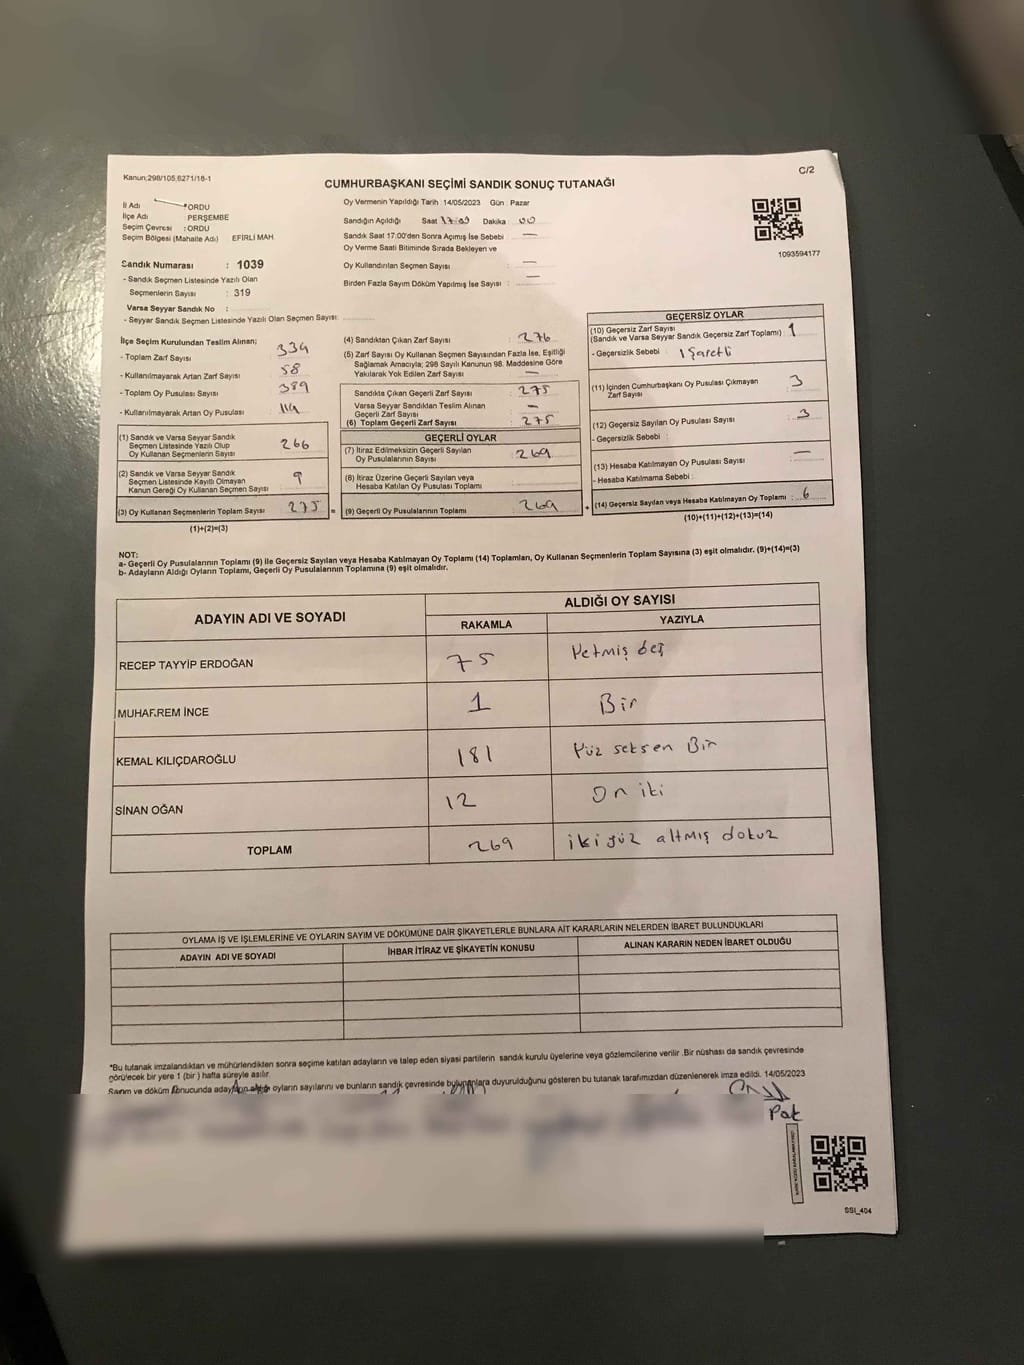 Kanun;298/105,6271/18-1
C/2
CUMHURBAŞKANI SEÇİMİ SANDIK SONUÇ TUTANAĞI
İl Adı : ORDU
İlçe Adı PERŞEMBE
Seçim Çevresi : ORDU
Seçim Bölgesi (Mahalle Adı) EFİRLİ MAH.
Sandık Numarası : 1039
- Sandık Seçmen Listesinde Yazılı Olan
Seçmenlerin Sayısı : 319
Varsa Seyyar Sandık No :
- Seyyar Sandık Seçmen Listesinde Yazılı Olan Seçmen Sayısı:
Oy Vermenin Yapıldığı Tarih :14/05/2023 Gün : Pazar
Sandığın Açıldığı Saat 17:09 Dakika 00
Sandık Saat 17:00'den Sonra Açımış İse Sebebi : —
Oy Verme Saati Bitiminde Sırada Bekleyen ve
Oy Kullandırılan Seçmen Sayısı : —
Birden Fazla Sayım Döküm Yapılmış İse Sayısı : —
1093594177
İlçe Seçim Kurulundan Teslim Alınan;
- Toplam Zarf Sayısı : 334
- Kullanılmayarak Artan Zarf Sayısı : 58
- Toplam Oy Pusulası Sayısı : 389
- Kullanılmayarak Artan Oy Pusulası : 114
(1) Sandık ve Varsa Seyyar Sandık
Seçmen Listesinde Yazılı Olup
Oy Kullanan Seçmenlerin Sayısı : 266
(2) Sandık ve Varsa Seyyar Sandık
Seçmen Listesinde Kayıtlı Olmayan
Kanun Gereği Oy Kullanan Seçmen Sayısı : 9
(3) Oy Kullanan Seçmenlerin Toplam Sayısı : 275 =
(1)+(2)=(3)
(4) Sandıktan Çıkan Zarf Sayısı : 276
(5) Zarf Sayısı Oy Kullanan Seçmen Sayısından Fazla İse, Eşitliği
Sağlamak Amacıyla; 298 Sayılı Kanunun 98. Maddesine Göre
Yakılarak Yok Edilen Zarf Sayısı : —
Sandıkta Çıkan Geçerli Zarf Sayısı : 275
Varsa Seyyar Sandıktan Teslim Alınan
Geçerli Zarf Sayısı : —
(6) Toplam Geçerli Zarf Sayısı : 275
GEÇERLİ OYLAR
(7) İtiraz Edilmeksizin Geçerli Sayılan
Oy Pusulalarının Sayısı : 269
(8) İtiraz Üzerine Geçerli Sayılan veya
Hesaba Katılan Oy Pusulası Toplamı :
(9) Geçerli Oy Pusulalarının Toplamı : 269 +
GEÇERSİZ OYLAR
(10) Geçersiz Zarf Sayısı
(Sandık ve Varsa Seyyar Sandık Geçersiz Zarf Toplamı) : 1
- Geçersizlik Sebebi : 1 işaretli
(11) İçinden Cumhurbaşkanı Oy Pusulası Çıkmayan
Zarf Sayısı : 3
(12) Geçersiz Sayılan Oy Pusulası Sayısı : 3
- Geçersizlik Sebebi :
(13) Hesaba Katılmayan Oy Pusulası Sayısı : —
- Hesaba Katılmama Sebebi :
(14) Geçersiz Sayılan veya Hesaba Katılmayan Oy Toplamı : 6
(10)+(11)+(12)+(13)=(14)
NOT:
a- Geçerli Oy Pusulalarının Toplamı (9) ile Geçersiz Sayılan veya Hesaba Katılmayan Oy Toplamı (14) Toplamları, Oy Kullanan Seçmenlerin Toplam Sayısına (3) eşit olmalıdır. (9)+(14)=(3)
b- Adayların Aldığı Oyların Toplamı, Geçerli Oy Pusulalarının Toplamına (9) eşit olmalıdır.
ADAYIN ADI VE SOYADI ALDIĞI OY SAYISI
RAKAMLA YAZIYLA
RECEP TAYYİP ERDOĞAN 75 Yetmiş beş
MUHARREM İNCE 1 Bir
KEMAL KILIÇDAROĞLU 181 Yüz seksen Bir
SİNAN OĞAN 12 On iki
TOPLAM 269 iki yüz altmış dokuz
OYLAMA İŞ VE İŞLEMLERİNE VE OYLARIN SAYIM VE DÖKÜMÜNE DAİR ŞİKAYETLERLE BUNLARA AİT KARARLARIN NELERDEN İBARET BULUNDUKLARI
ADAYIN ADI VE SOYADI İHBAR İTİRAZ VE ŞİKAYETİN KONUSU ALINAN KARARIN NEDEN İBARET OLDUĞU
*Bu tutanak imzalandıktan ve mühürlendikten sonra seçime katılan adayların ve talep eden siyasi partilerin sandık kurulu üyelerine veya gözlemcilerine verilir .Bir nüshası da sandık çevresinde
görülecek bir yere 1 (bir ) hafta süreyle asılır.
Sayım ve döküm sonucunda adayların aldığı oyların sayılarını ve bunların sandık çevresinde bulunanlara duyurulduğunu gösteren bu tutanak tarafımızdan düzenlenerek imza edildi. 14/05/2023
Pak
SSI_404